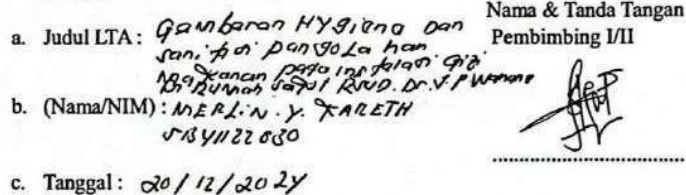 Nama & Tanda Tangan
Pembimbing I/II
a. Judul LTA : Gambaran HYgiena Dan
sanitasi pangola han
Makanan pada instalasi gizi
Di Rumah sakit RSUD. Dr. J. P Wanane
b. (Nama/NIM) : MERLIN. Y. KARETH
c. Tanggal : 20/12/2024